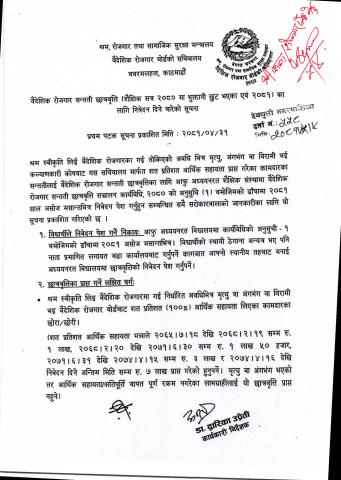 श्रम, रोजगार तथा सामाजिक सुरक्षा मन्त्रालय
वैदेशिक रोजगार बोर्डको सचिवालय
बबरमहल, काठमाडौं
वैदेशिक रोजगार सन्तती छात्रवृत्ति (शैक्षिक सत्र २०८० मा भुक्तानी छुट भएका एवं २०८१) का
लागि निवेदन दिने बारेको सूचना
दर्ता नं. : २२८
मिति:
प्रथम पटक सूचना प्रकाशित मिति : २०८१/०४/३१
श्रम स्वीकृति लिई वैदेशिक रोजगारका गई तोकिएको अवधि भित्र मृत्यु, अंगभंग वा विरामी भई
कल्याणकारी कोषबाट यस सचिवालय मार्फत शत प्रतिशत आर्थिक सहायता प्राप्त गरेका कामदारका
सन्ततीलाई वैदेशिक रोजगार सन्तती छात्रवृत्तिका लागि आफु अध्ययनरत शैक्षिक संस्थामा वैदेशिक
रोजगार सन्तती छात्रवृत्ति सञ्चालन कार्यविधि, २०८० को अनुसुची (१) बमोजिमको ढाँचामा २०८१
साल असोज मसान्तभित्र निवेदन पेश गर्नुहुन सम्बन्धित सबै सरोकारवालाको जानकारीका लागि यो
सूचना प्रकाशित गरिएको छ ।
१. विद्यार्थीले निवेदन पेश गर्ने निकायः आफु अध्ययनरत विद्यालयमा कार्यविधिको अनुसुची - १
बमोजिमको ढाँचामा २०८१ असोज मसान्तभित्र। विद्यार्थीको स्थायी ठेगाना अन्यत्र भए पनि
नाता प्रमाणित लगायत वडा कार्यालयबाट गर्नुपर्ने कागजात आफ्नो स्थानीय तहबाट बनाई
अध्ययनरत विद्यालयमा छात्रवृत्तिको निवेदन पेश गर्नुपर्ने।
२. छात्रवृत्तिका प्राप्त गर्ने लक्षित वर्गः
● श्रम स्वीकृति लिई वैदेशिक रोजगारमा गई निर्धारित अवधिभित्र मृत्यु वा अंगभंग वा विरामी
भई वैदेशिक रोजगार बोर्डबाट शत प्रतिशत (१००%) आर्थिक सहायता लिएका कामदारका
छोरा/छोरी।
(शत प्रतिशत आर्थिक सहायता भन्नाले २०६५।७।१८ देखि २०६८।२।१९ सम्म रु.
१ लाख, २०६८।२।२० देखि २०७१।६।३० सम्म रु. १ लाख ५० हजार,
२०७१।६।३१ देखि २०७४।४।१५ सम्म रु. ३ लाख र २०७४।४।१६ देखि
निवेदन दिने अन्तिम मिति सम्म रु. ७ लाख प्राप्त गरेको हुनुपर्ने। मृत्यु वा अंगभंग भएको
तर आर्थिक सहायता/क्षतिपूर्ति बापत पूर्ण रकम नगरेका लाभग्राहीलाई यो छात्रवृत्ति प्राप्त
नहुने।
डा. द्वारिका उप्रेती
कार्यकारी निर्देशक